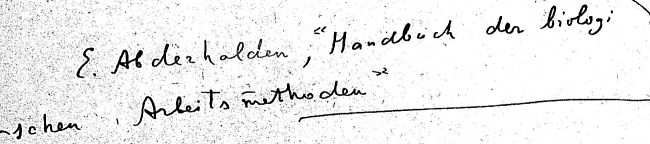 E. Abderhalden, "Handbuch der biologi
-schen Arbeitsmethoden"